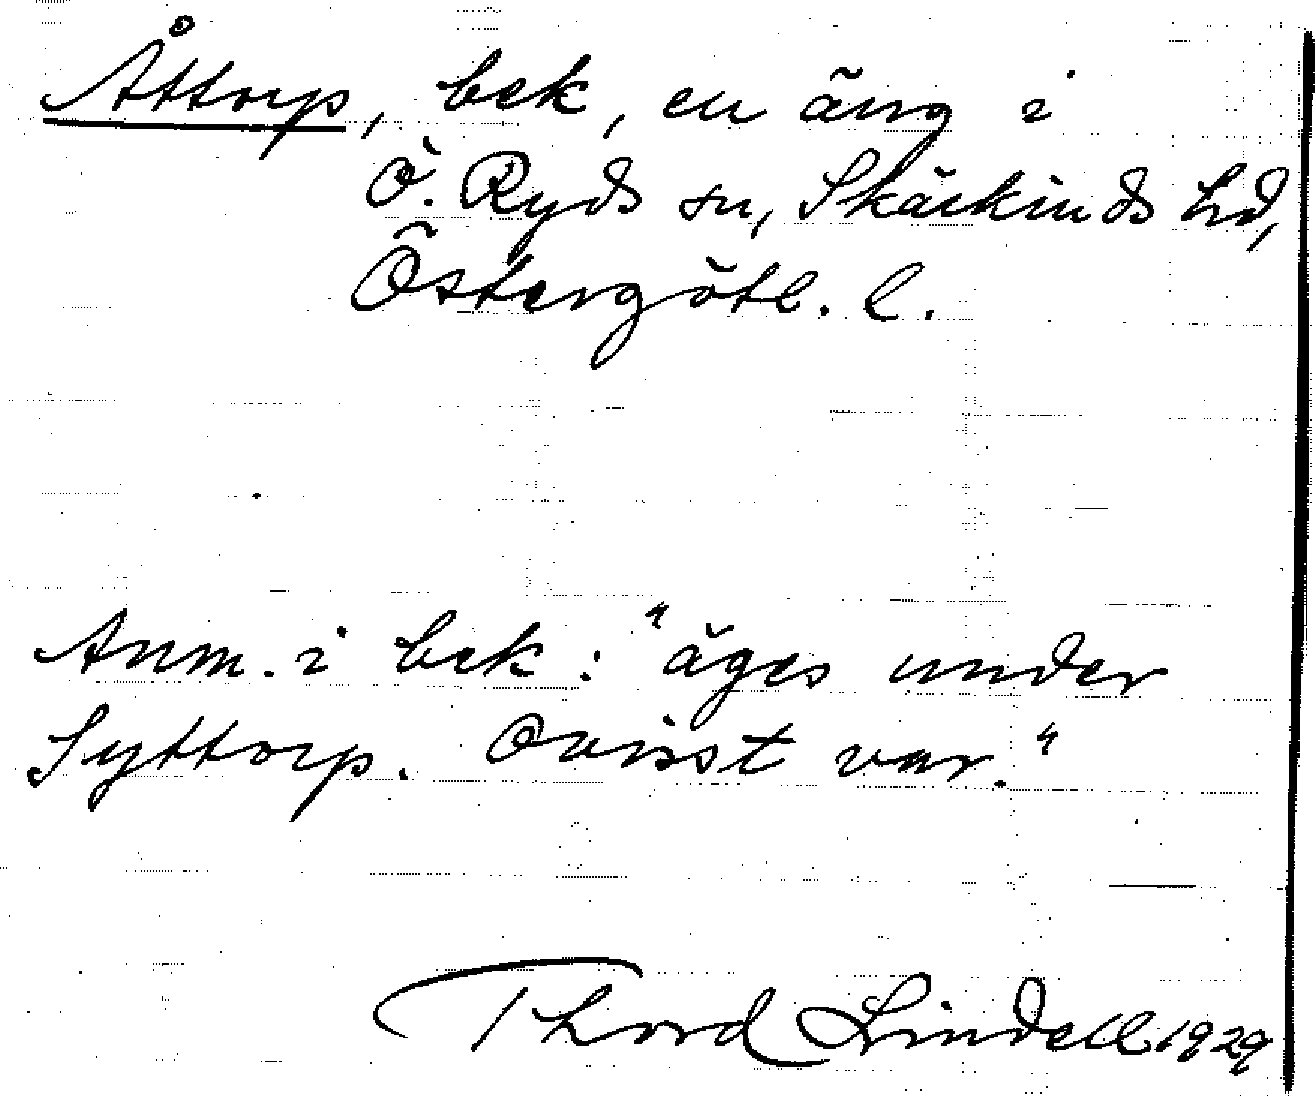 Åttorp, bek, en äng i
Ö. Ryds sn, Skärkinds hd,
Östergötl. l.
Anm. i bek: "äges under
Syttorp. Ovisst var."
Thord Lindell 1929